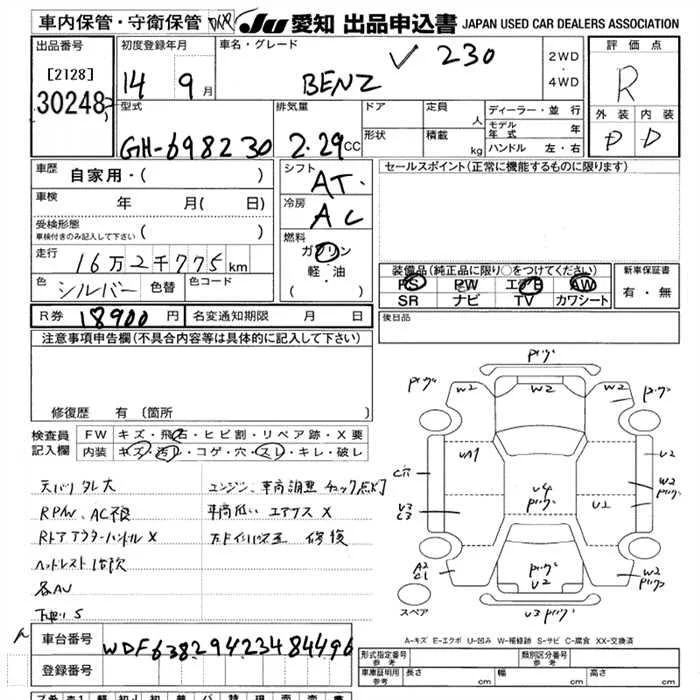 車内保管・守衛保管 JU 愛知 出品申込書 JAPAN USED CAR DEALERS ASSOCIATION
出品番号 [2128] 30248
初度登録年月 14 9月
車名・グレード BENZ 230
2WD・4WD
評価点 R
外装 内装
D D
型式 GH-698230
排気量 2.29CC
ドア 形状
定員 人
積載 kg
ディーラー・並行
モデル年式 年
ハンドル 左・右
車歴 自家用・( )
車検 年 月( 日)
受検形態
車検付きのみ記入して下さい
走行 16万2千775km
色 シルバー 色替 色コード
シフト AT
冷房 AC
燃料 ガソリン
軽・油
( ・ )
セールスポイント(正常に機能するものに限ります)
装備品(純正品に限り○をつけてください)
PS PW エアB AW
SR ナビ TV カワシート
新車保証書
有・無
R券 18900円 名変通知期限 月 日
後日品
注意事項申告欄(不具合内容等は具体的に記入して下さい)
修復歴 有 (箇所
検査員記入欄
FW キズ・飛石・ヒビ割・リペア跡・X要
内装 キズ・汚レ・コゲ・穴・スレ・キレ・破レ
天バリタレ大
RPW、AC不良
Rドアアウターハンドル X
ヘッドレスト1ケ欠
各AU
下廻りS
エンジン、車高調整チェック点灯
車高低い エアサス X
修復
W2 W2 W2
UA1 U2
W2
U4
U2
U3 C3
A2 C1
U2
W2
U3
スペア
A-キズ E-エクボ U-凹み W-補修跡 S-サビ C-腐食 XX-交換済
車台番号 WDF63829423484496
登録番号
形式指定番号 参考
類別区分番号 参考
車庫証明用 参考 長さ 幅 高さ